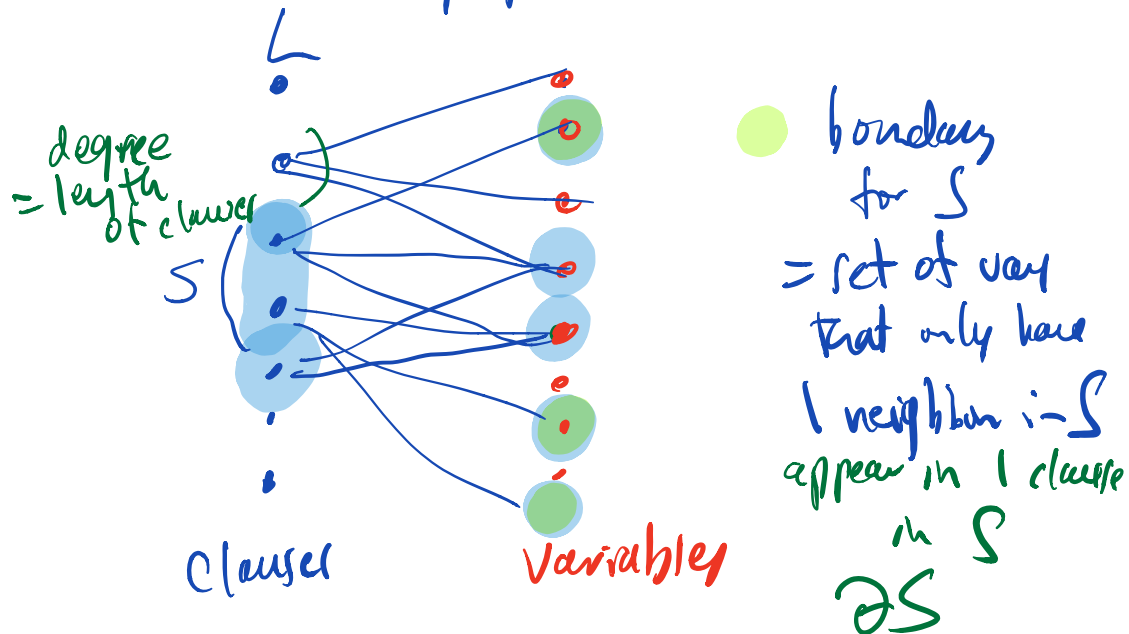 L
degree
= length
of clauses
S
clauses
variables
boundary
for S
= set of vars
that only have
1 neighbor in S
appear in 1 clause
in S
∂S